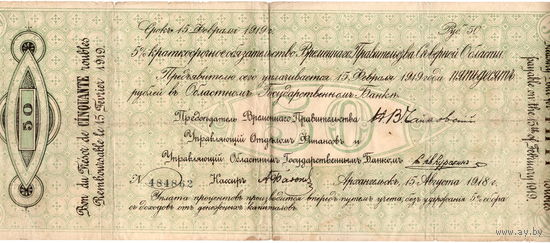 Срокъ 15 Февраля 1919 г. Руб. 50
5% краткосрочное обязательство Временнаго Правительства Сѣверной Области.
Предъявителю сего уплачивается 15 Февраля 1919 года пятьдесятъ
рублей въ Областномъ Государственномъ Банкѣ.
Предсѣдатель Временнаго Правительства Н В Чайковскій
Управляющій Отдѣломъ Финансовъ и
Управляющій Областнымъ Государственнымъ Банкомъ
№ 484862 Кассиръ Архангельскъ, 15 Августа 1918 г.
Уплата процентовъ производится впередъ путемъ учета, безъ удержанія 5% сбора
съ доходовъ отъ денежныхъ капиталовъ.
50
Bon du Trésor de CINQUANTE roubles
Remboursable le 15 Février 1919.
payable on the 15th of February 1919.
www.ay.by